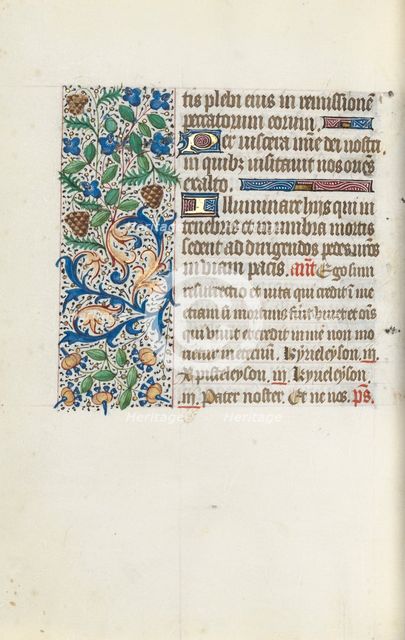 tis plebi eius in remissionẽ
peccatorum eorum.
Per viscera mie dei nostri
in quibz visitavit nos oriẽs
ex alto.
Illuminare hijs qui in
tenebris et in umbra mortis
sedent ad dirigendos pedes nr̃os
in viam pacis. añt Ego sum
resurrectio et vita qui credit ĩ me
etiam si mortuus fuĩt vivet et oĩs
qui vivit et credit in me non mo
rietur in eternũ. Kyrieleyson. iij
Xpisteleyson. iij Kyrieleyson.
.iij. Pater noster. Et ne nos. p̃s.
heritage images
Heritage
Heritage